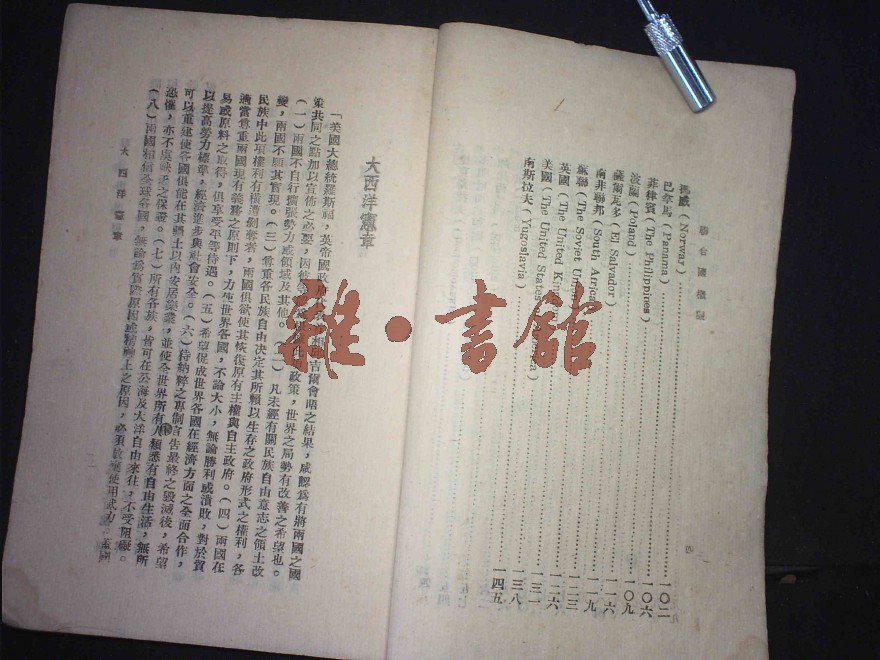 聯合國概觀
挪威(Norway)……102
巴拿馬(Panama)……106
菲律賓(The Philippines)……109
波蘭(Poland)
薩爾瓦多(El Salvador)……116
南非聯邦(South Africa)……119
蘇聯(The Soviet Union)……123
英國(The United Kingdom)……126
美國(The United States)……131
南斯拉夫(Yugoslavia)
一三八
一四五
四
大西洋憲章
「美國大總統羅斯福,英帝國政府吉爾會晤之結果,咸認為有將兩國之國
策共同之點加以宣佈之必要,因政策,世界之局勢有改善之希望也。
(一)兩國不自行擴張勢力或領域及其他。(二)凡未經有關民族自由意志之領土改
變,兩國不願其實現。(三)尊重各民族自由決定其所賴以生存之政府形式之權利,各
民族中此項權利有橫遭剝奪者,兩國俱欲使其恢復原有主權與自主政府。(四)兩國在
適當尊重兩國現有義務之原則下,力使世界各國,不論大小,無論勝利或潰敗,對於貿
易或原料之取得,俱享受平等待遇。(五)希望促成世界各國在經濟方面之全面合作,
以提高勞力標準,經濟進步與社會安全。(六)待納粹之專制宣告最終之毀滅後,希望
可以重建使各國俱能在其疆土以內安居樂業,並使全世界所有人類悉有自由生活,無所
恐懼,亦不虞缺乏之保證。(七)所有各族,皆可在公海及大洋自由來往,不受阻礙。
(八)兩國相信全球各國,無論為實際原因或精神上之原因,必須放棄使用武力
大西洋憲章
雜·書館